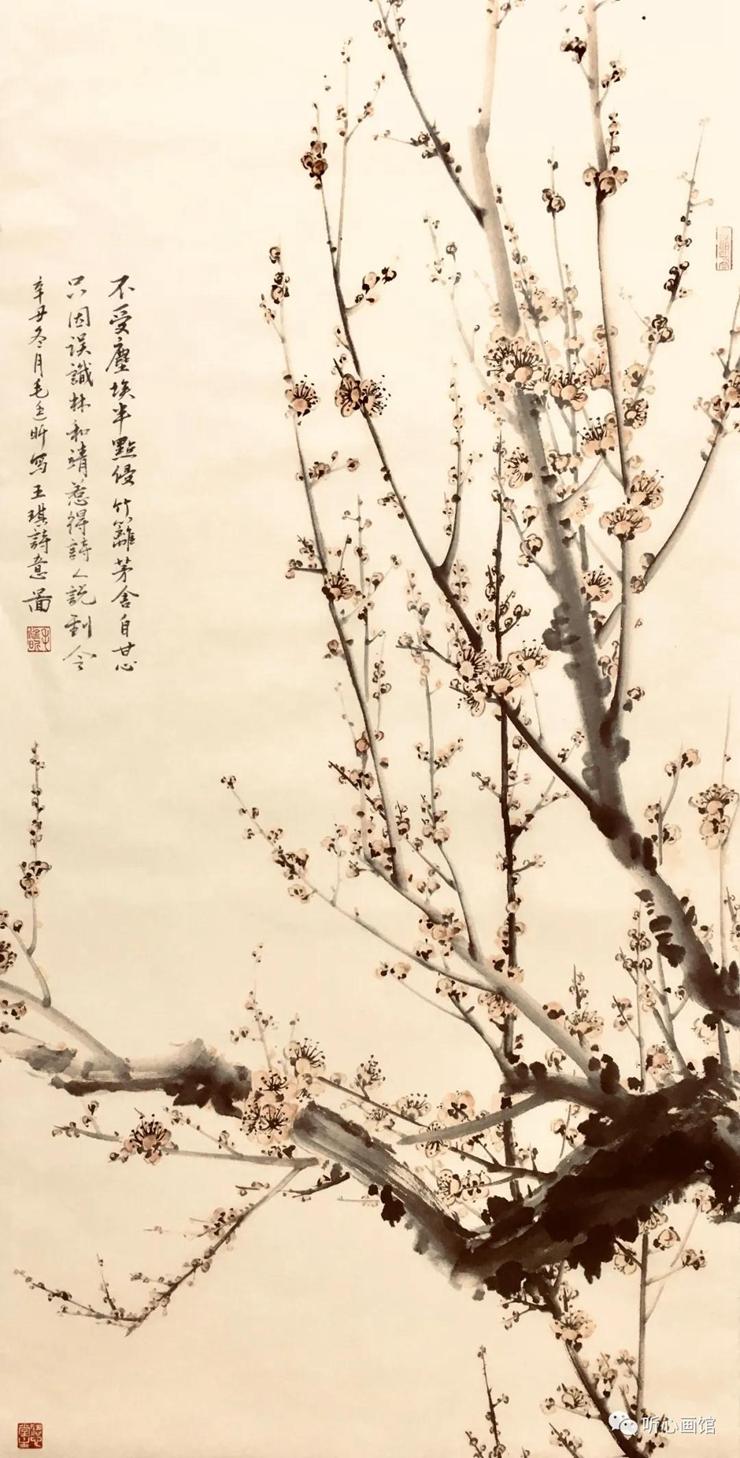 不受塵埃半點侵竹籬茅舍自甘心
只因误識林和靖惹得詩人説到今
辛丑冬月毛昕寫王琪詩意圖
听心画馆